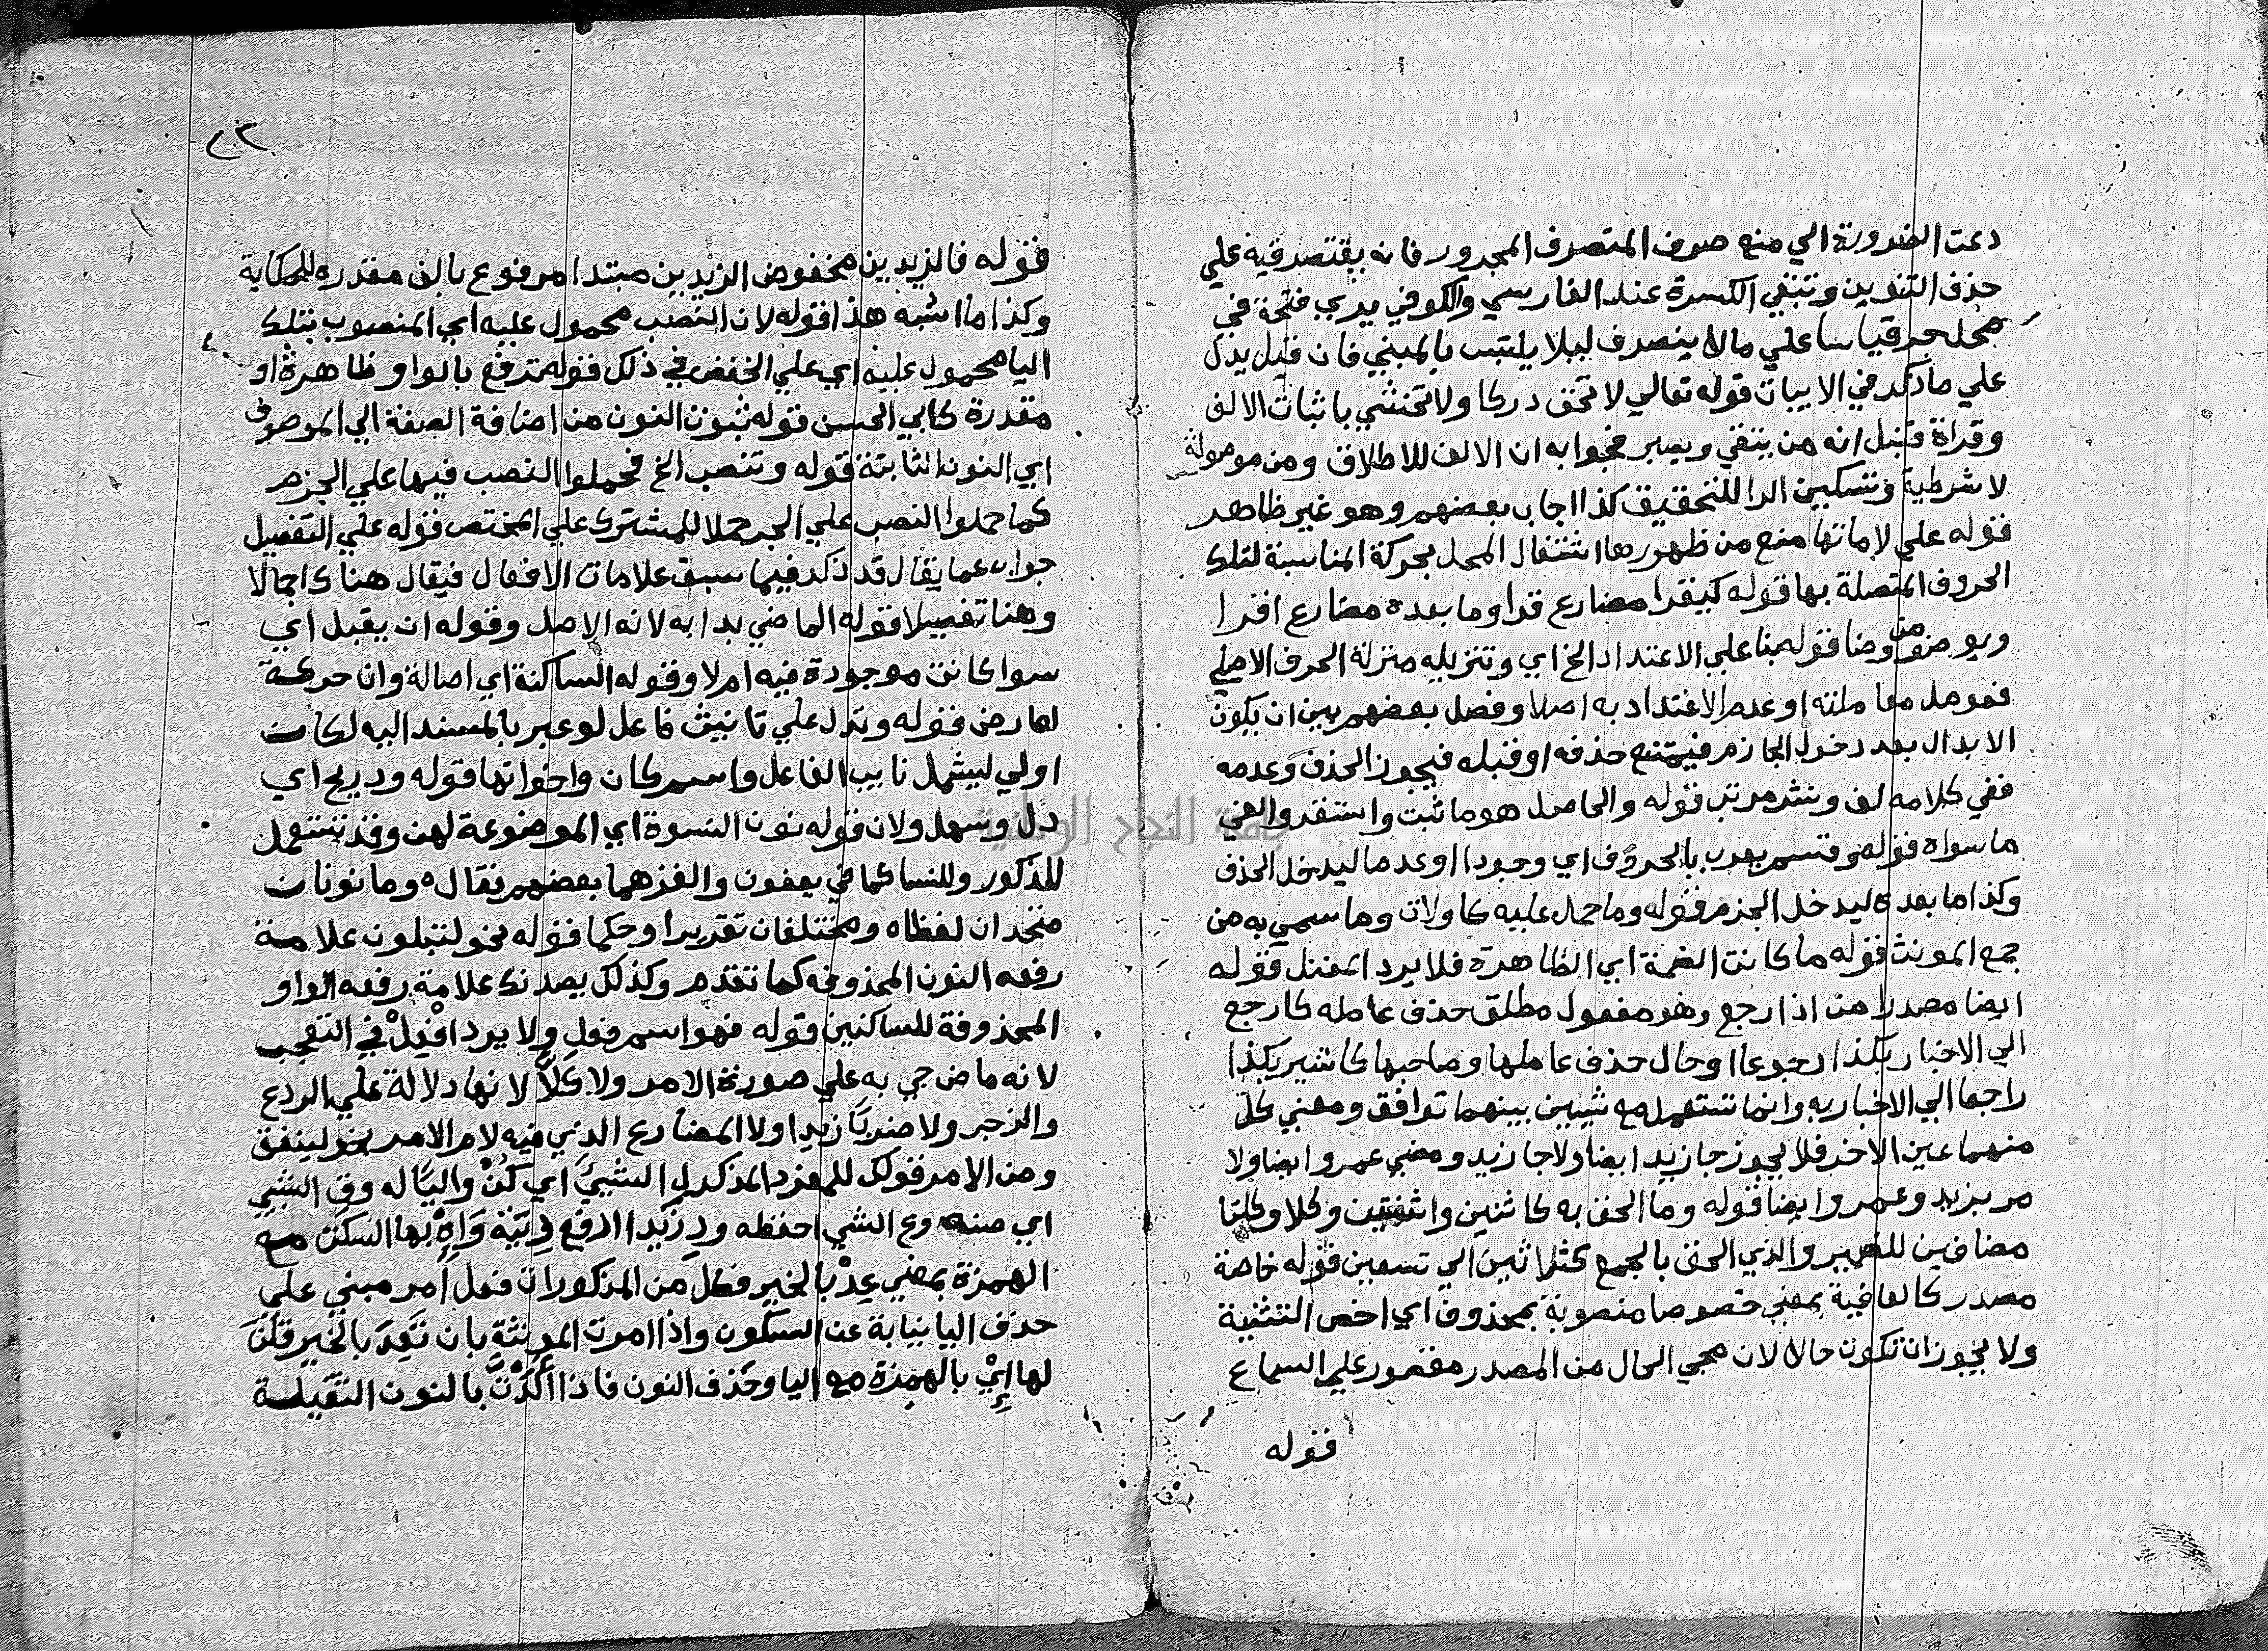 دعت الضرورة الي منع صرف المتصرف المجرور فانه يقتصر فيه علي
حذف التنوين وتبقي الكسرة عند الفارسي والكوفي يري فتحة في
محل جر قياسا علي مالا ينصرف ليلا يلتبس بالمبني فان قيل يدل
علي ما ذكر في الابيات قوله تعالي لا تخف دركا ولا تخشي باثبات الالف
وقراة قنبل انه من يتقي ويصبر فجوابه ان الالف للاطلاق ومن موصولة
لا شرطية وتسكين الرا للتخفيف كذا اجاب بعضهم وهو غير ظاهر
قوله علي لاماتها منع من ظهورها اشتغال المحل بحركة المناسبة لتلك
الحروف المتصلة بها قوله كيقرا مضارع قرا وما بعده مضارع اقرا
ويوضو من وضا قوله بنا علي الاعتداد الخ اي وتنزيله منزلة الحرف الاصلي
فعومل معاملته او عدم الاعتداد به اصلا وفصل بعضهم بين ان يكون
الابدال بعد دخول الجازم فيمتنع حذفه او قبله فيجوز الحذف وعدمه
ففي كلامه لف ونشر مرتب قوله والحاصل هو ما ثبت واستقر والغي
ما سواه قوله وقسم يعرب بالحروف اي وجودا او عدما ليدخل الحذف
وكذا ما بعده ليدخل الجزم قوله وما حمل عليه كاولات وما سمي به من
جمع المونث قوله ما كانت الضمة اي الظاهرة فلا يرد المعتل قوله
ايضا مصدر من اذا رجع وهو مفعول مطلق حذف عامله كارجع
الي الاخبار بكذا رجوعا او حال حذف عاملها وصاحبها كاشير بكذا
راجعا الي الاخبار به وانما تستعمل مع شيين بينهما توافق ومغني كل
منهما عين الاخر فلا يجوز جا زيد ايضا ولا جا زيد ومضي عمرو ايضا ولا
مر بزيد وعمرو ايضا قوله وما الحق به كاثنين واثنتين وكلا وكلتا
مضافين للضمير والذي الحق بالجمع كثلاثين الي تسعين قوله خاصة
مصدر كالعافية بمعني خصوصا منصوبة بمحذوف اي اخص التثنية
ولا يجوز ان تكون حالا لان مجي الحال من المصدر مقصور علي السماع
قوله
٢٣
قوله فالزيدين مخفوض الزيدين مبتدا مرفوع بالف مقدره للحكاية
وكذا ما اشبه هذا قوله لان النصب محمول عليه اي المنصوب بتلك
اليا محمول عليه اي علي الخفض في ذلك قوله ترفع بالواو ظاهرة او
مقدرة كابي الحسن قوله ثبوت النون من اضافة الصفة الي الموصوف
اي النون الثابتة قوله وتنصب الخ فحملوا النصب فيها علي الجزم
كما حملوا النصب علي الجر حملا للمشترك علي المختص قوله علي التفصيل
جواب عما يقال قد ذكر فيما سبق علامات الافعال فيقال هناك اجمالا
وهنا تفصيلا قوله الماضي بدا به لانه الاصل وقوله ان يقبل اي
سوا كانت موجودة فيه ام لا وقوله الساكنة اي اصالة وان حركة
لعارض قوله وتدل علي تانيث فاعل لو عبر بالمسند اليه لكان
اولي ليشمل نايب الفاعل واسم كان واخواتها قوله ودريج اي
دل وسهل ولان قوله نون النسوة اي الموضوعة لهن وقد تستعمل
للذكور وللنسا كما في يعفون والغزهما بعضهم فقال ه وما نونان
متحدان لفظا ه ومختلفان تقديرا وحكما قوله نحو لتبلون علامة
رفعه النون المحذوفه كما تقدم وكذلك يصدنك علامة رفعه الواو
المحذوفة للساكنين قوله فهو اسم فعل ولا يرد افعل في التعجب
لانه ماض جي به علي صورة الامر ولا كلا لانها دلالة علي الردع
والزجر ولا ضربا زيدا ولا المضارع الذي فيه لام الامر نحو لينفق
ومن الامر قولك للمفرد المذكر ل الشيئ اي كن واليا له وق الشيي
اي صنه وع الشي احفظه ود زيدا ادفع ديته واه بها السكت مع
الهمزة بمعني عد بالخير فكل من المذكورات فعل امر مبني علي
حذف اليا نيابة عن السكون واذا امرت المونثة بان تعد بالخير قلت
لها اي بالهمزة مع اليا وحذف النون فاذا اكدت بالنون الثقيلة